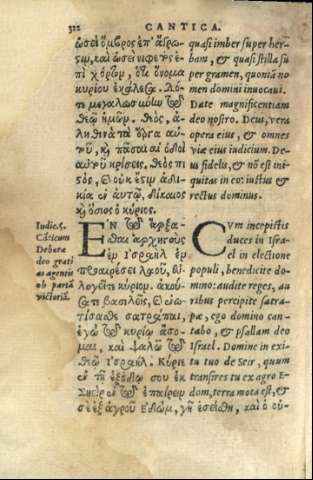 312 CANTICA.
ὡσεὶ ὄμβρος ἐπ' ἄγρω-
ςιν, καὶ ὡσεὶ νιφετὸς ἐ-
πὶ χόρτον, ὅτι ὄνομα
κυρίου ἐκάλεσα. Δό-
τε μεγαλωσύνην τῷ
θεῷ ἡμῶν. Θεὸς, ἀ-
ληθινὰ τὰ ἔργα αὐ-
τοῦ, καὶ πᾶσαι αἱ ὁδοὶ
αὐτοῦ κρίσεις. Θεὸς πι-
ςὸς, καὶ οὐκ ἔςιν ἀδι-
κία ἐν αὐτῷ, δίκαιος
καὶ ὅσιος ὁ κύριος.
quasi imber super her-
bam, & quasi stilla su
per gramen, quoniā no
men domini inuocaui.
Date magnificentiam
deo nostro. Deus, vera
opera eius, & omnes
viæ eius iudicium. De-
us fidelis, & nō est ini-
quitas in eo: iustus &
rectus dominus.
Iudic. 5.
Cāticum
Deboræ
deo grati
as agentis
ob partā
victoriā.
ΕΝ τῷ ἄρξα-
σθαι ἀρχηγοὺς
ἐν ἰσραὴλ ἐν
προαιρέσει λαοῦ, εὐ-
λογεῖτε κύριον. ἀκού-
σατε βασιλεῖς, καὶ ἐνω-
τίσασθε σατράπαι,
ἐγὼ τῷ κυρίῳ ᾄσο-
μαι, καὶ ψαλῶ τῷ
θεῷ ἰσραήλ. Κύριε
ἐν τῇ ἐξόδῳ σου ἐκ
Σηεὶρ ἐν τῷ ἀπαίρειν
σὲ ἐξ ἀγροῦ ἐδὼμ, γῆ ἐσείσθη, καὶ ὁ οὐ-
CVm incepistis
duces in Isra-
el in electione
populi, benedicite do-
mino: audite reges, au
ribus percipite satra-
pæ, ego domino can-
tabo, & psallam deo
Israel. Domine in exi-
tu tuo de Seir, quum
transires tu ex agro E-
dom, terra mota est, &